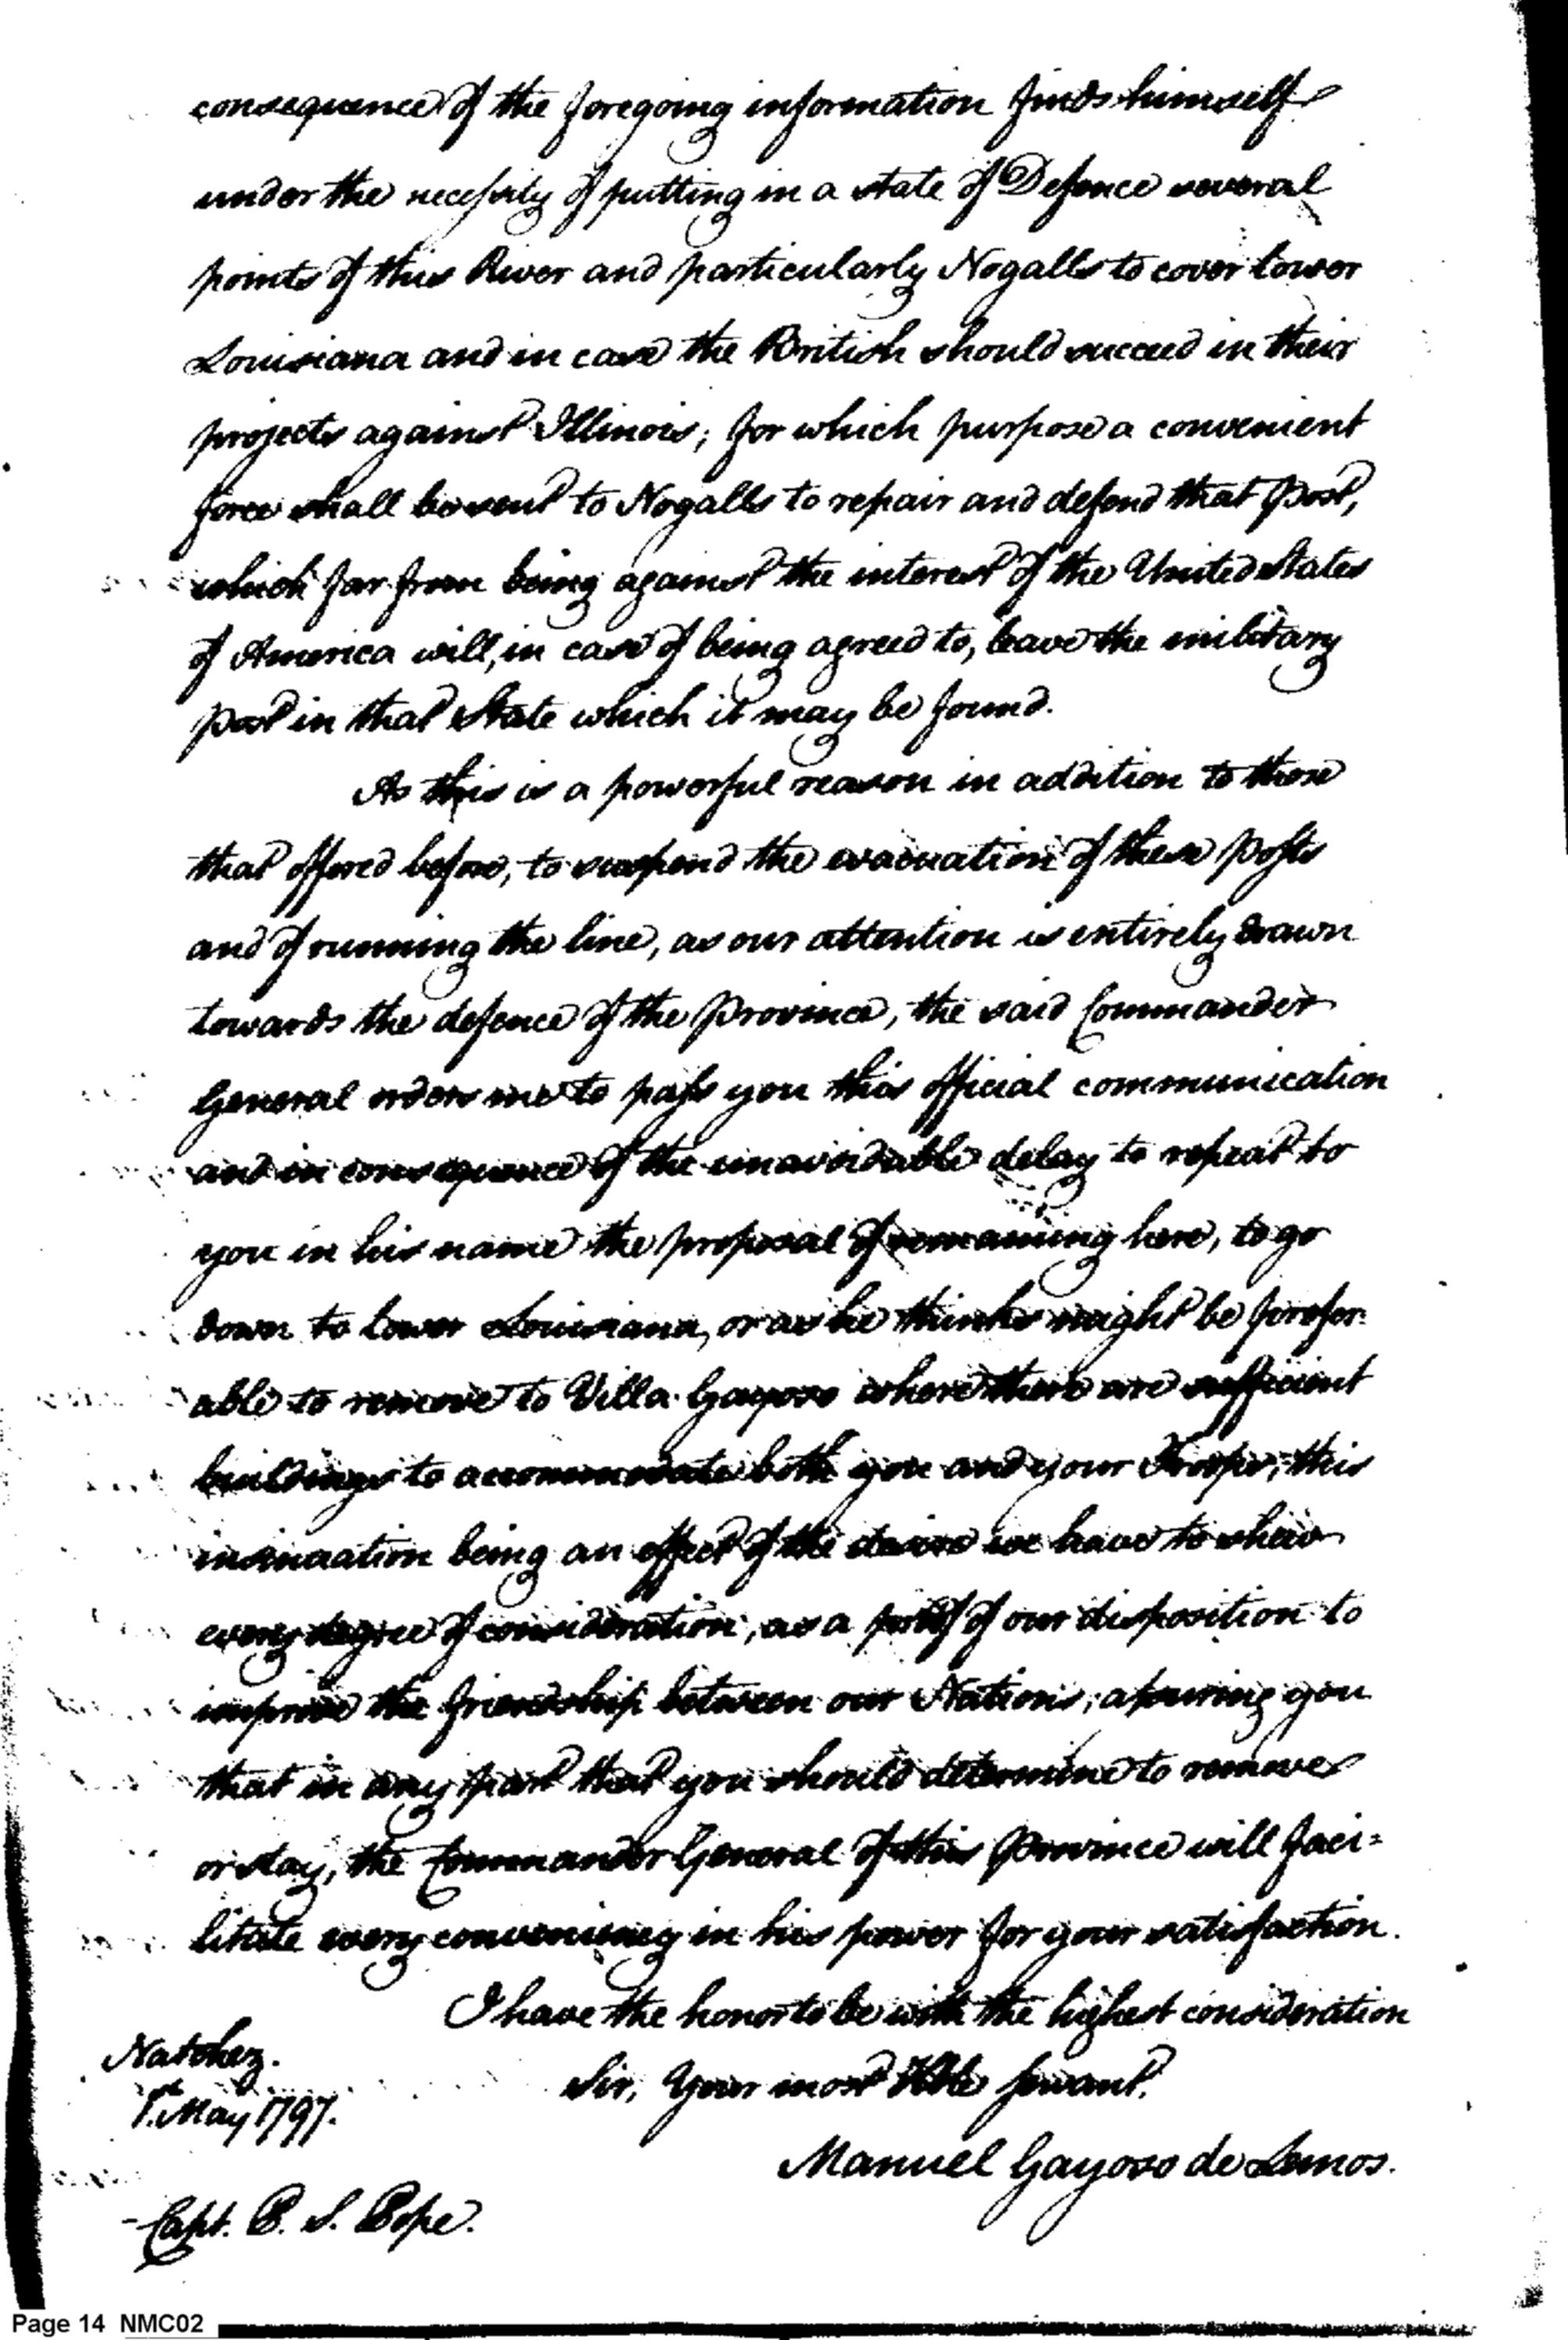 consequence of the foregoing information finds himself
under the necessity of putting in a state of Defence several
points of this River and particularly Nogalls to cover lower
Louisiana and in case the British should succeed in their
projects against Illinois; for which purpose a convenient
force shall be sent to Nogalls to repair and defend that Post,
which far from being against the interest of the United States
of America will, in case of being agreed to, leave the military
post in that State which it may be found.
As this is a powerful reason in addition to those
that offered before, to suspend the evacuation of these Posts
and of running the line, as our attention is entirely drawn
towards the defence of the Province, the said Commander
General orders me to pass you this official communication
and in consequence of the unavoidable delay to repeat to
you in his name the proposal of remaining here, to go
down to lower Louisiana, or as he thinks might be prefer-
able to remove to Villa Gayoso where there are sufficient
buildings to accommodate both you and your Troops, this
insinuation being an effect of the desire we have to shew
every degree of consideration, as a proof of our disposition to
improve the friendship between our Nations; assuring you
that in any part that you should determine to remove
or stay, the Commander General of this Province will faci=
litate every conveniency in his power for your satisfaction.
I have the honor to be with the highest consideration
Sir, Your most Hble servant.
Natchez.
1st May 1797.
Manuel Gayoso de Lemos.
- Capt. P. S. Pope.
Page 14 NMC02